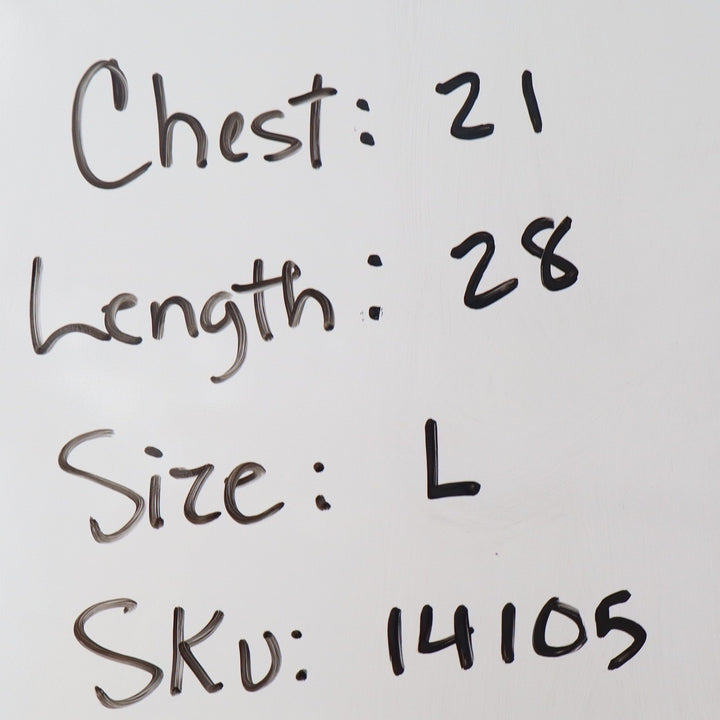 Chest: 21
Length: 28
Size: L
SKU: 14105